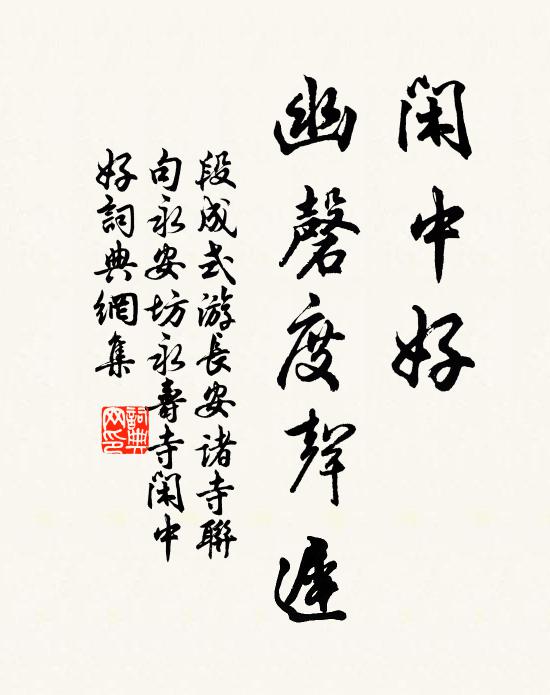 閑中好
幽磬度聲遲
段成式游長安諸寺聯
句永安坊永壽寺閑中
好詞典網集
詞典
网印